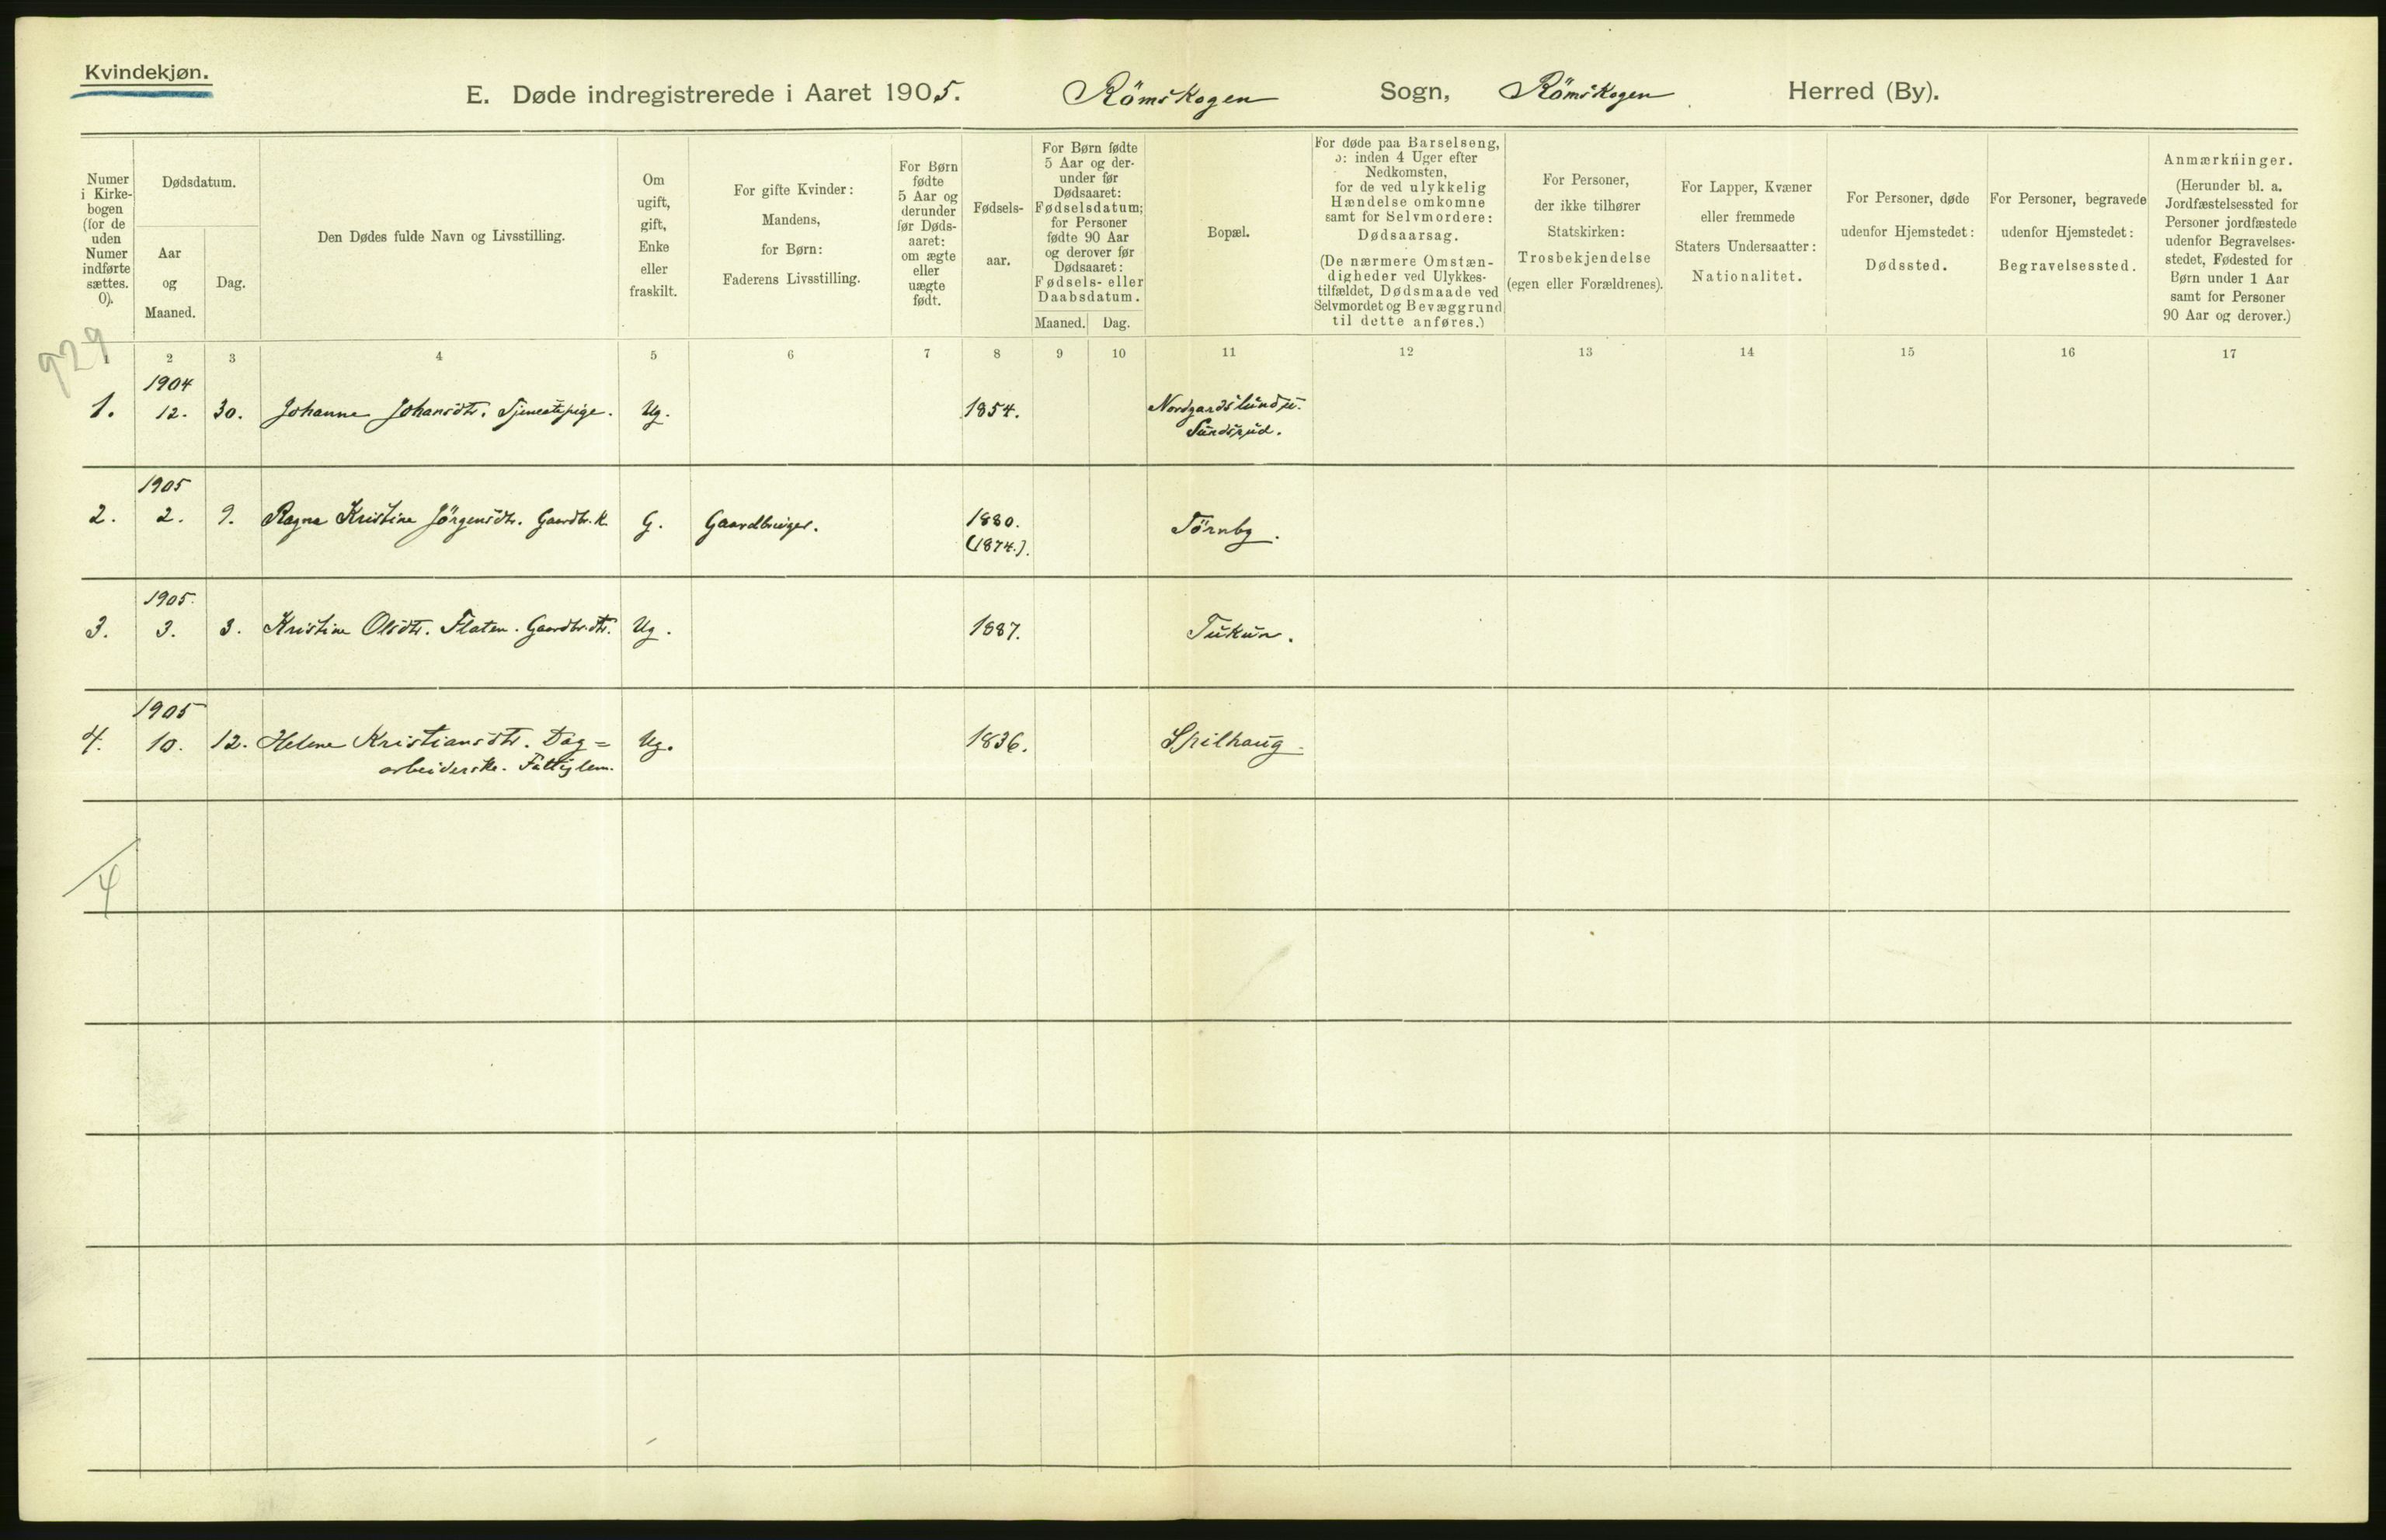 Kvindekjøn.
E. Døde indregistrerede i Aaret 1905. Römskogen Sogn, Römskogen Herred (By).
Numer
i Kirke-
bogen
(for de
uden
Numer
indførte
sættes.
0).
Dødsdatum.
Aar
og
Maaned.
Dag.
Den Dødes fulde Navn og Livsstilling.
Om
ugift,
gift,
Enke
eller
fraskilt.
For gifte Kvinder:
Mandens,
for Børn:
Faderens Livsstilling.
For Børn
fødte
5 Aar og
derunder
før Døds-
aaret:
om ægte
eller
uægte
født.
Fødsels-
aar.
For Børn fødte
5 Aar og der-
under før
Dødsaaret:
Fødselsdatum;
for Personer
fødte 90 Aar
og derover før
Dødsaaret:
Fødsels- eller
Daabsdatum.
Maaned. Dag.
Bopæl.
For døde paa Barselseng,
ɔ: inden 4 Uger efter
Nedkomsten,
for de ved ulykkelig
Hændelse omkomne
samt for Selvmordere:
Dødsaarsag.
(De nærmere Omstæn-
digheder ved Ulykkes-
tilfældet, Dødsmaade ved
Selvmordet og Bevæggrund
til dette anføres.)
For Personer,
der ikke tilhører
Statskirken:
Trosbekjendelse
(egen eller Forældrenes).
For Lapper, Kvæner
eller fremmede
Staters Undersaatter:
Nationalitet.
For Personer, døde
udenfor Hjemstedet:
Dødssted.
For Personer, begravede
udenfor Hjemstedet:
Begravelsessted.
Anmærkninger.
(Herunder bl. a.
Jordfæstelsessted for
Personer jordfæstede
udenfor Begravelses-
stedet, Fødested for
Børn under 1 Aar
samt for Personer
90 Aar og derover.)
929
1 2 3 4 5 6 7 8 9 10 11 12 13 14 15 16 17
1904
1. 12. 30. Johanne Johansdtr. Tjenestepige. Ug. 1854.
Sundsrud.
1905
2. 2. 9. Ragna Kristine Jörgensdtr. Gaardbr. K. G. Gaardbruger. 1880. Törnby.
(1874.).
1905.
3. 3. 3. Kristine Olsdtr. Flaten. Gaardbr.dtr. Ug. 1887. Tukun.
1905
4. 10. 12. Helene Kristiansdtr. Dag= Ug. 1836. Spilhaug.
arbeiderske. Fattiglem.
4